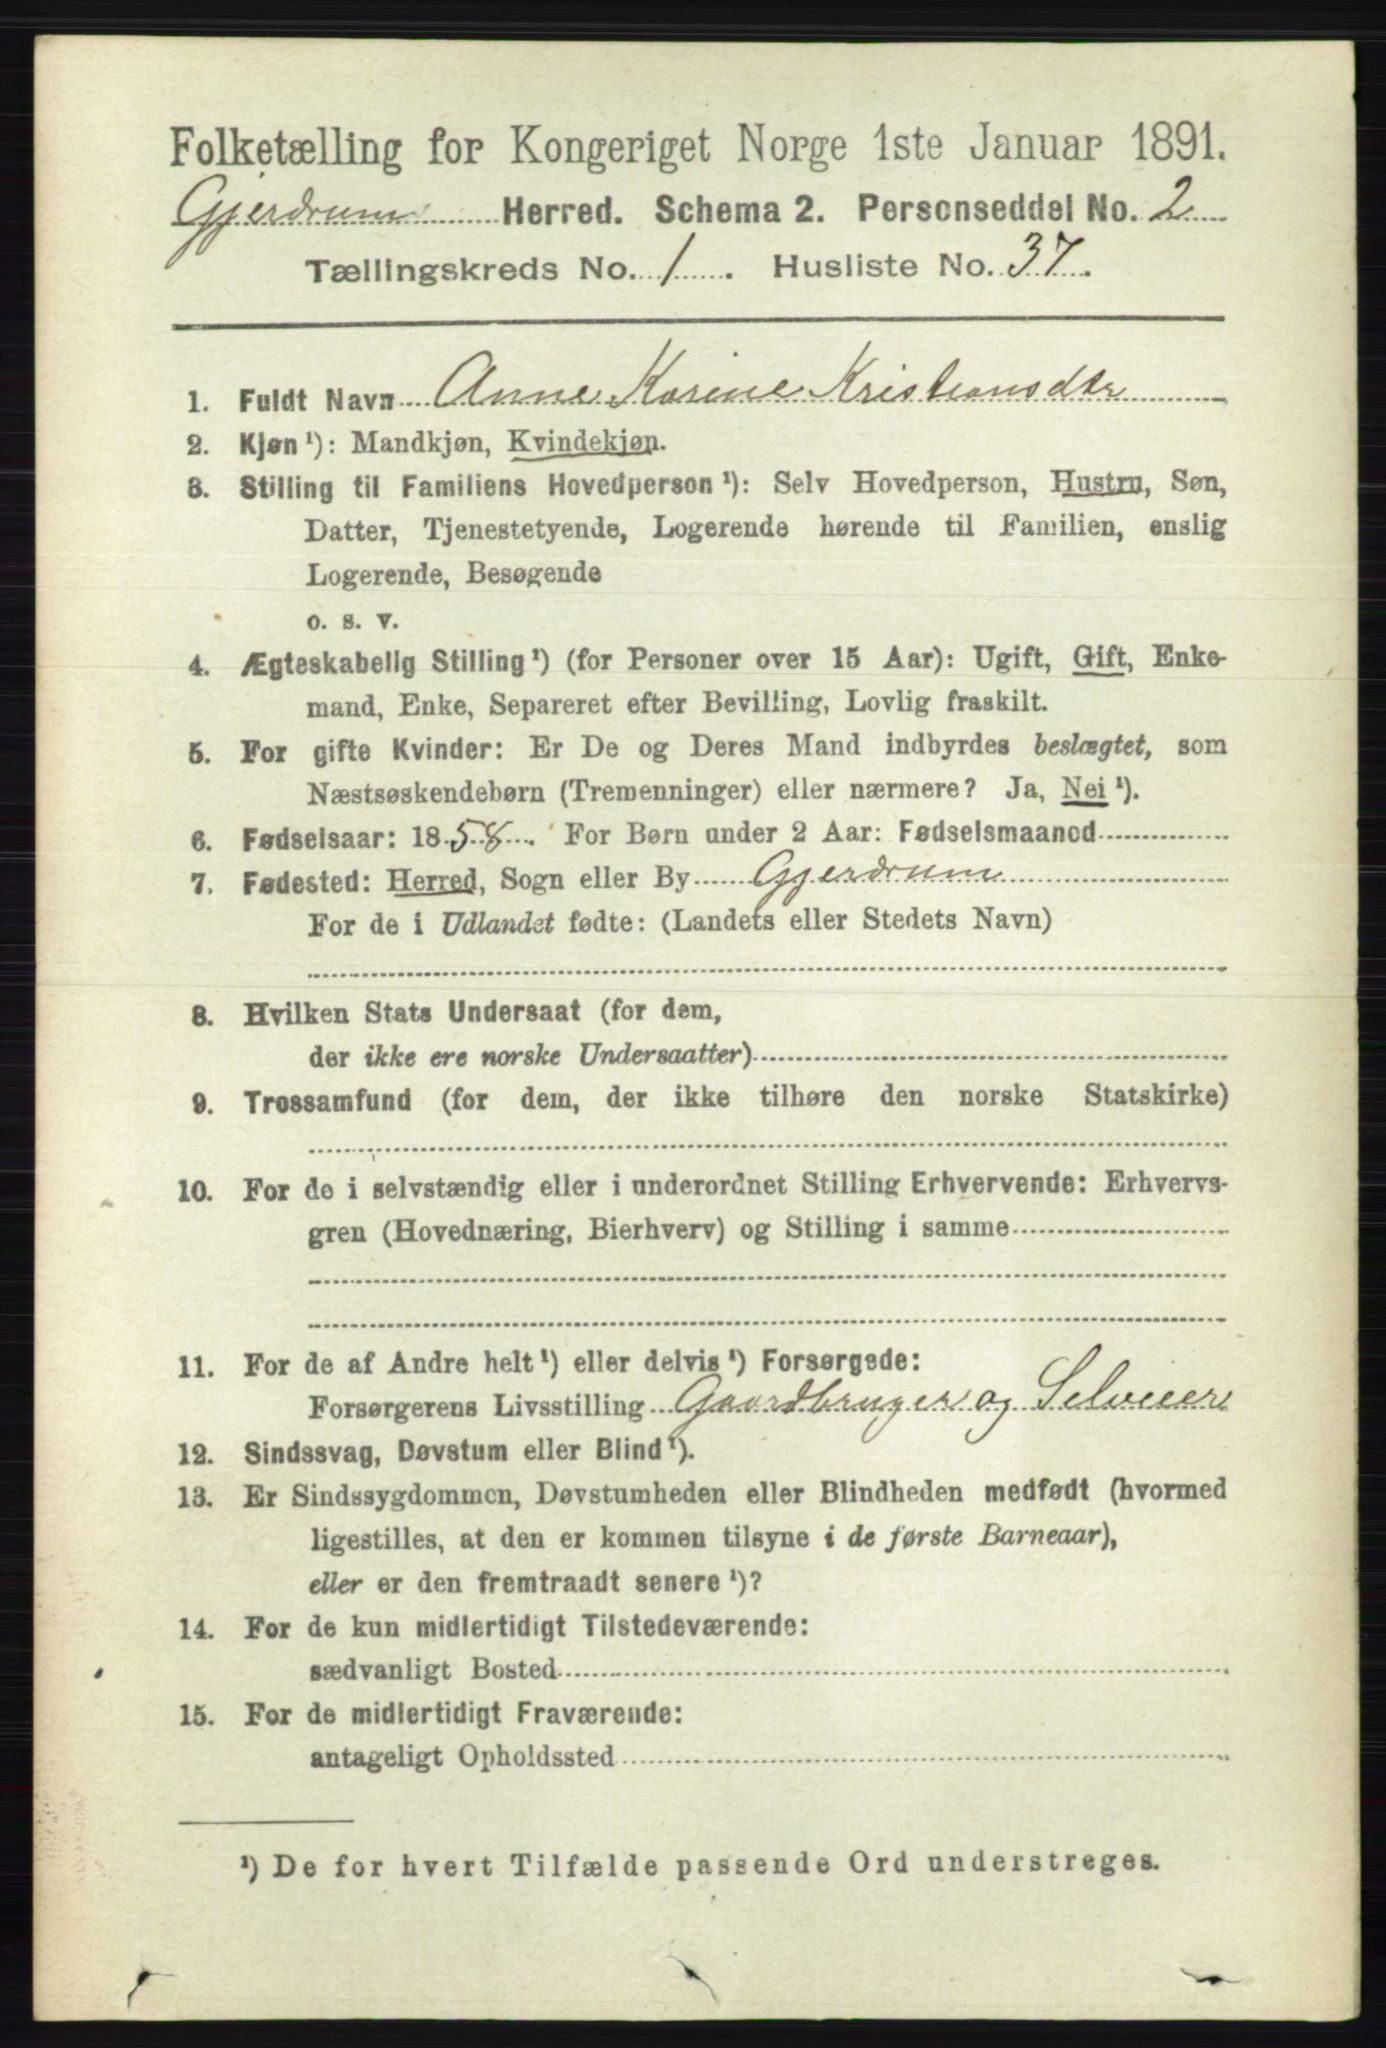 Folketælling for Kongeriget Norge 1ste Januar 1891.
Gjerdrum Herred. Schema 2. Personseddel No. 2
Tællingskreds No. 1. Husliste No. 37.
1. Fuldt Navn Anne Karine Kristiansdtr
2. Kjøn ¹): Mandkjøn, Kvindekjøn.
3. Stilling til Familiens Hovedperson ¹): Selv Hovedperson, Hustru, Søn,
Datter, Tjenestetyende, Logerende hørende til Familien, enslig
Logerende, Besøgende
o. s. v.
4. Ægteskabelig Stilling ¹) (for Personer over 15 Aar): Ugift, Gift, Enke-
mand, Enke, Separeret efter Bevilling, Lovlig fraskilt.
5. For gifte Kvinder: Er De og Deres Mand indbyrdes beslægtet, som
Næstsøskendebørn (Tremenninger) eller nærmere? Ja, Nei ¹).
6. Fødselsaar: 1858. For Børn under 2 Aar: Fødselsmaaned
7. Fødested: Herred, Sogn eller By Gjerdrum
For de i Udlandet fødte: (Landets eller Stedets Navn)
8. Hvilken Stats Undersaat (for dem,
der ikke ere norske Undersaatter)
9. Trossamfund (for dem, der ikke tilhøre den norske Statskirke)
10. For de i selvstændig eller i underordnet Stilling Erhvervende: Erhvervs-
gren (Hovednæring, Bierhverv) og Stilling i samme
11. For de af Andre helt ¹) eller delvis ¹) Forsørgede:
Forsørgerens Livsstilling Gaardbruger og Selveier
12. Sindssvag, Døvstum eller Blind ¹).
13. Er Sindssygdommen, Døvstumheden eller Blindheden medfødt (hvormed
ligestilles, at den er kommen tilsyne i de første Barneaar),
eller er den fremtraadt senere ¹)?
14. For de kun midlertidigt Tilstedeværende:
sædvanligt Bosted
15. For de midlertidigt Fraværende:
antageligt Opholdssted
¹) De for hvert Tilfælde passende Ord understreges.